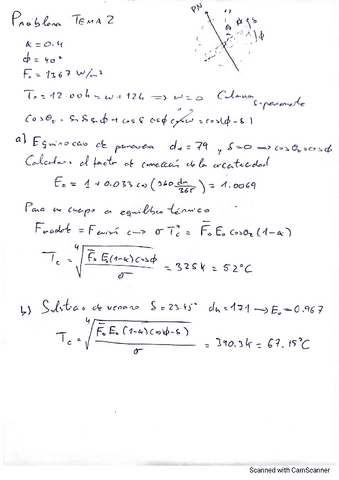 Problema TEMA 2
PN
α = 0.4
ϕ = 40°
F₀ = 1367 W/m²
T₀ = 12:00h = w + 12h ⟹ w = 0
cosθ₀ = sinδ sinϕ + cosδ cosϕ cos w = cos(ϕ - δ)
a) Equinoccio de primavera dn = 79 y δ = 0 → cosθ₀ = cosϕ
Calculamos el factor de corrección de la excentricidad
E₀ = 1 + 0.033 cos(360 dn/365) = 1.0069
Para un cuerpo en equilibrio térmico
σ Tc⁴ = F̄₀ E₀ cosθ₀ (1-α)
Tc = ⁴√(F̄₀ E₀ (1-α) cosϕ / σ) = 325K = 52°C
b) Solsticio de verano δ = 23.45° dn = 171 → E₀ = 0.967
Tc = ⁴√(F̄₀ E₀ (1-α) cos(ϕ-δ) / σ) = 340.3K = 67.15°C
Scanned with CamScanner